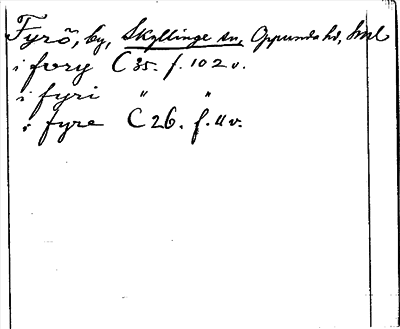 Fyrö, by, Skyllinge sn, Oppunda hd, Sml
i fory C 35. f. 102 v.
i fyri " "
i fyre C 26. f. 11 v.